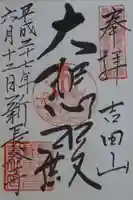 奉拝 吉田山
大悲殿
平成二十七年
六月十二日 新長谷寺